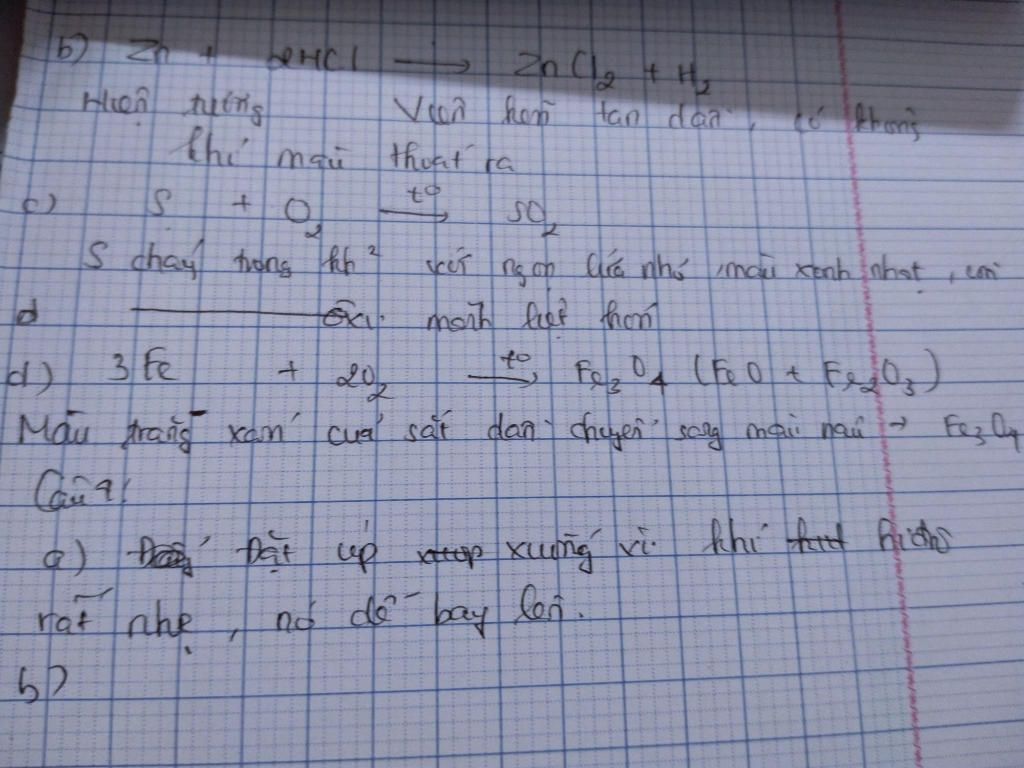 b) Zn + 2HCl → ZnCl₂ + H₂
Hiện tượng Viên kẽm tan dần, có không
khí màu thoát ra
c) S + O₂ →t° SO₂
S cháy trong kk² với ngọn lửa nhỏ, màu xanh nhạt, còn
d Oxi mãnh liệt hơn
d) 3Fe + 2O₂ →t° Fe₃O₄ (FeO + Fe₂O₃)
Màu trắng xám của sắt dần chuyển sang màu nâu → Fe₃O₄
Câu 9/
a) Đặt úp xuống vì khí hiđrô
rất nhẹ, nó dễ bay lên.
b)